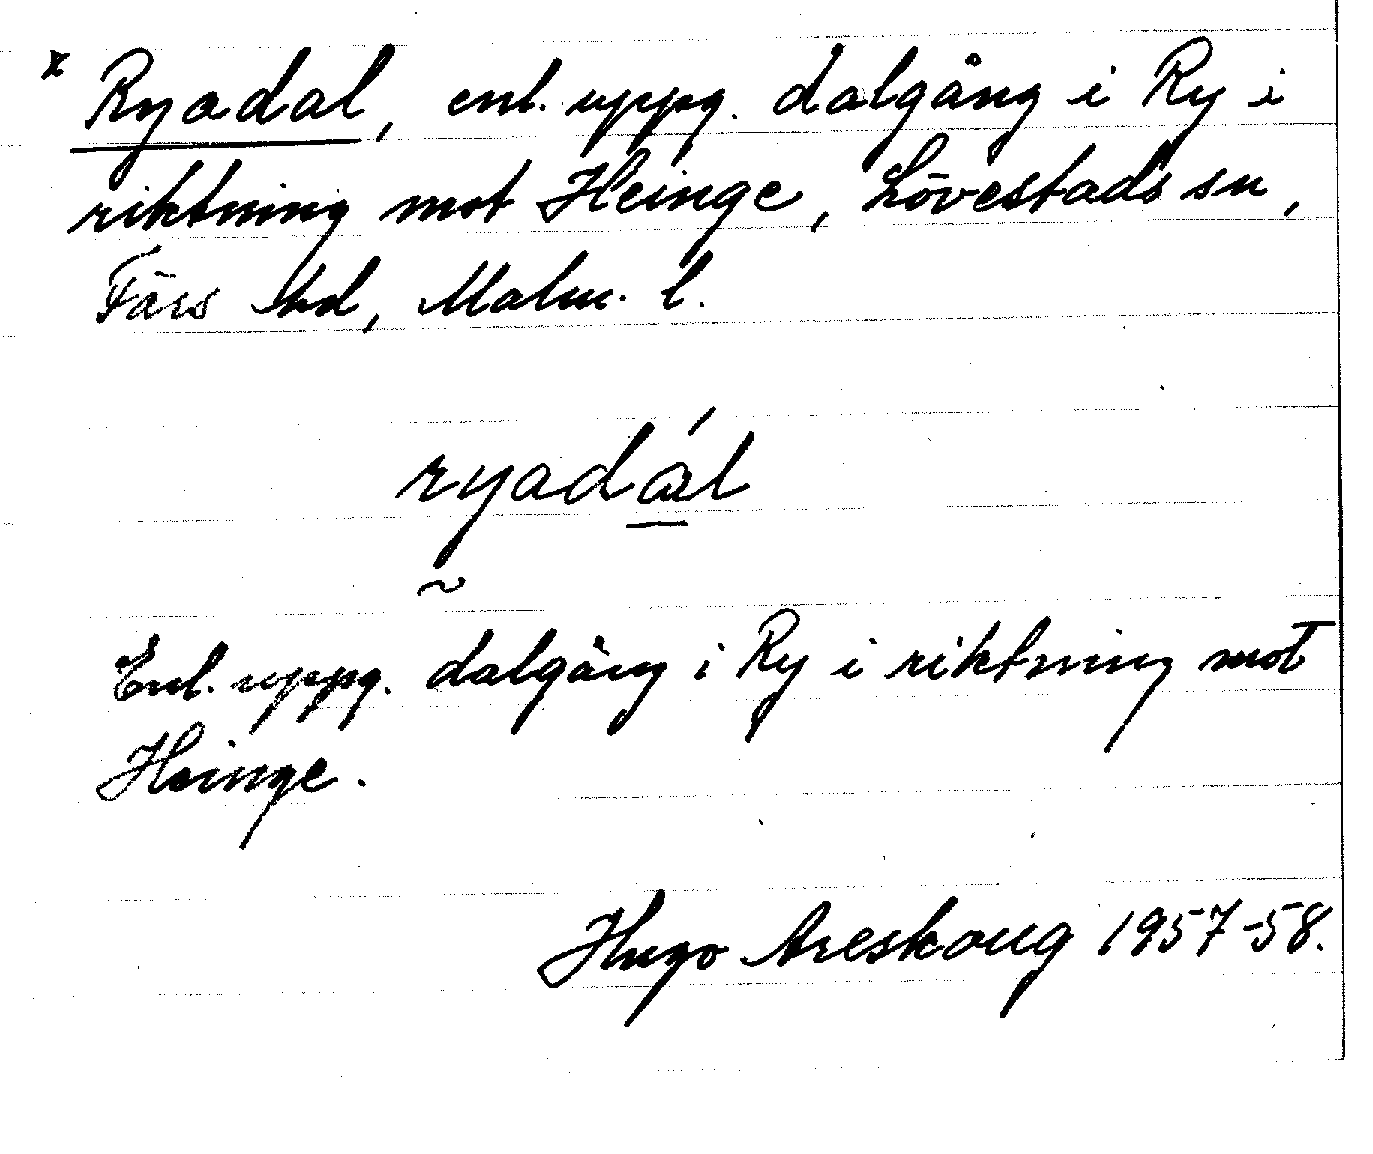 x Ryadal, enl. uppg. dalgång i Ry i
riktning mot Heinge, Lövestads sn,
Färs hd, Malm. l.
ryadál
~
Enl. uppg. dalgång i Ry i riktning mot
Heinge.
Hugo Areskoug 1957-58.